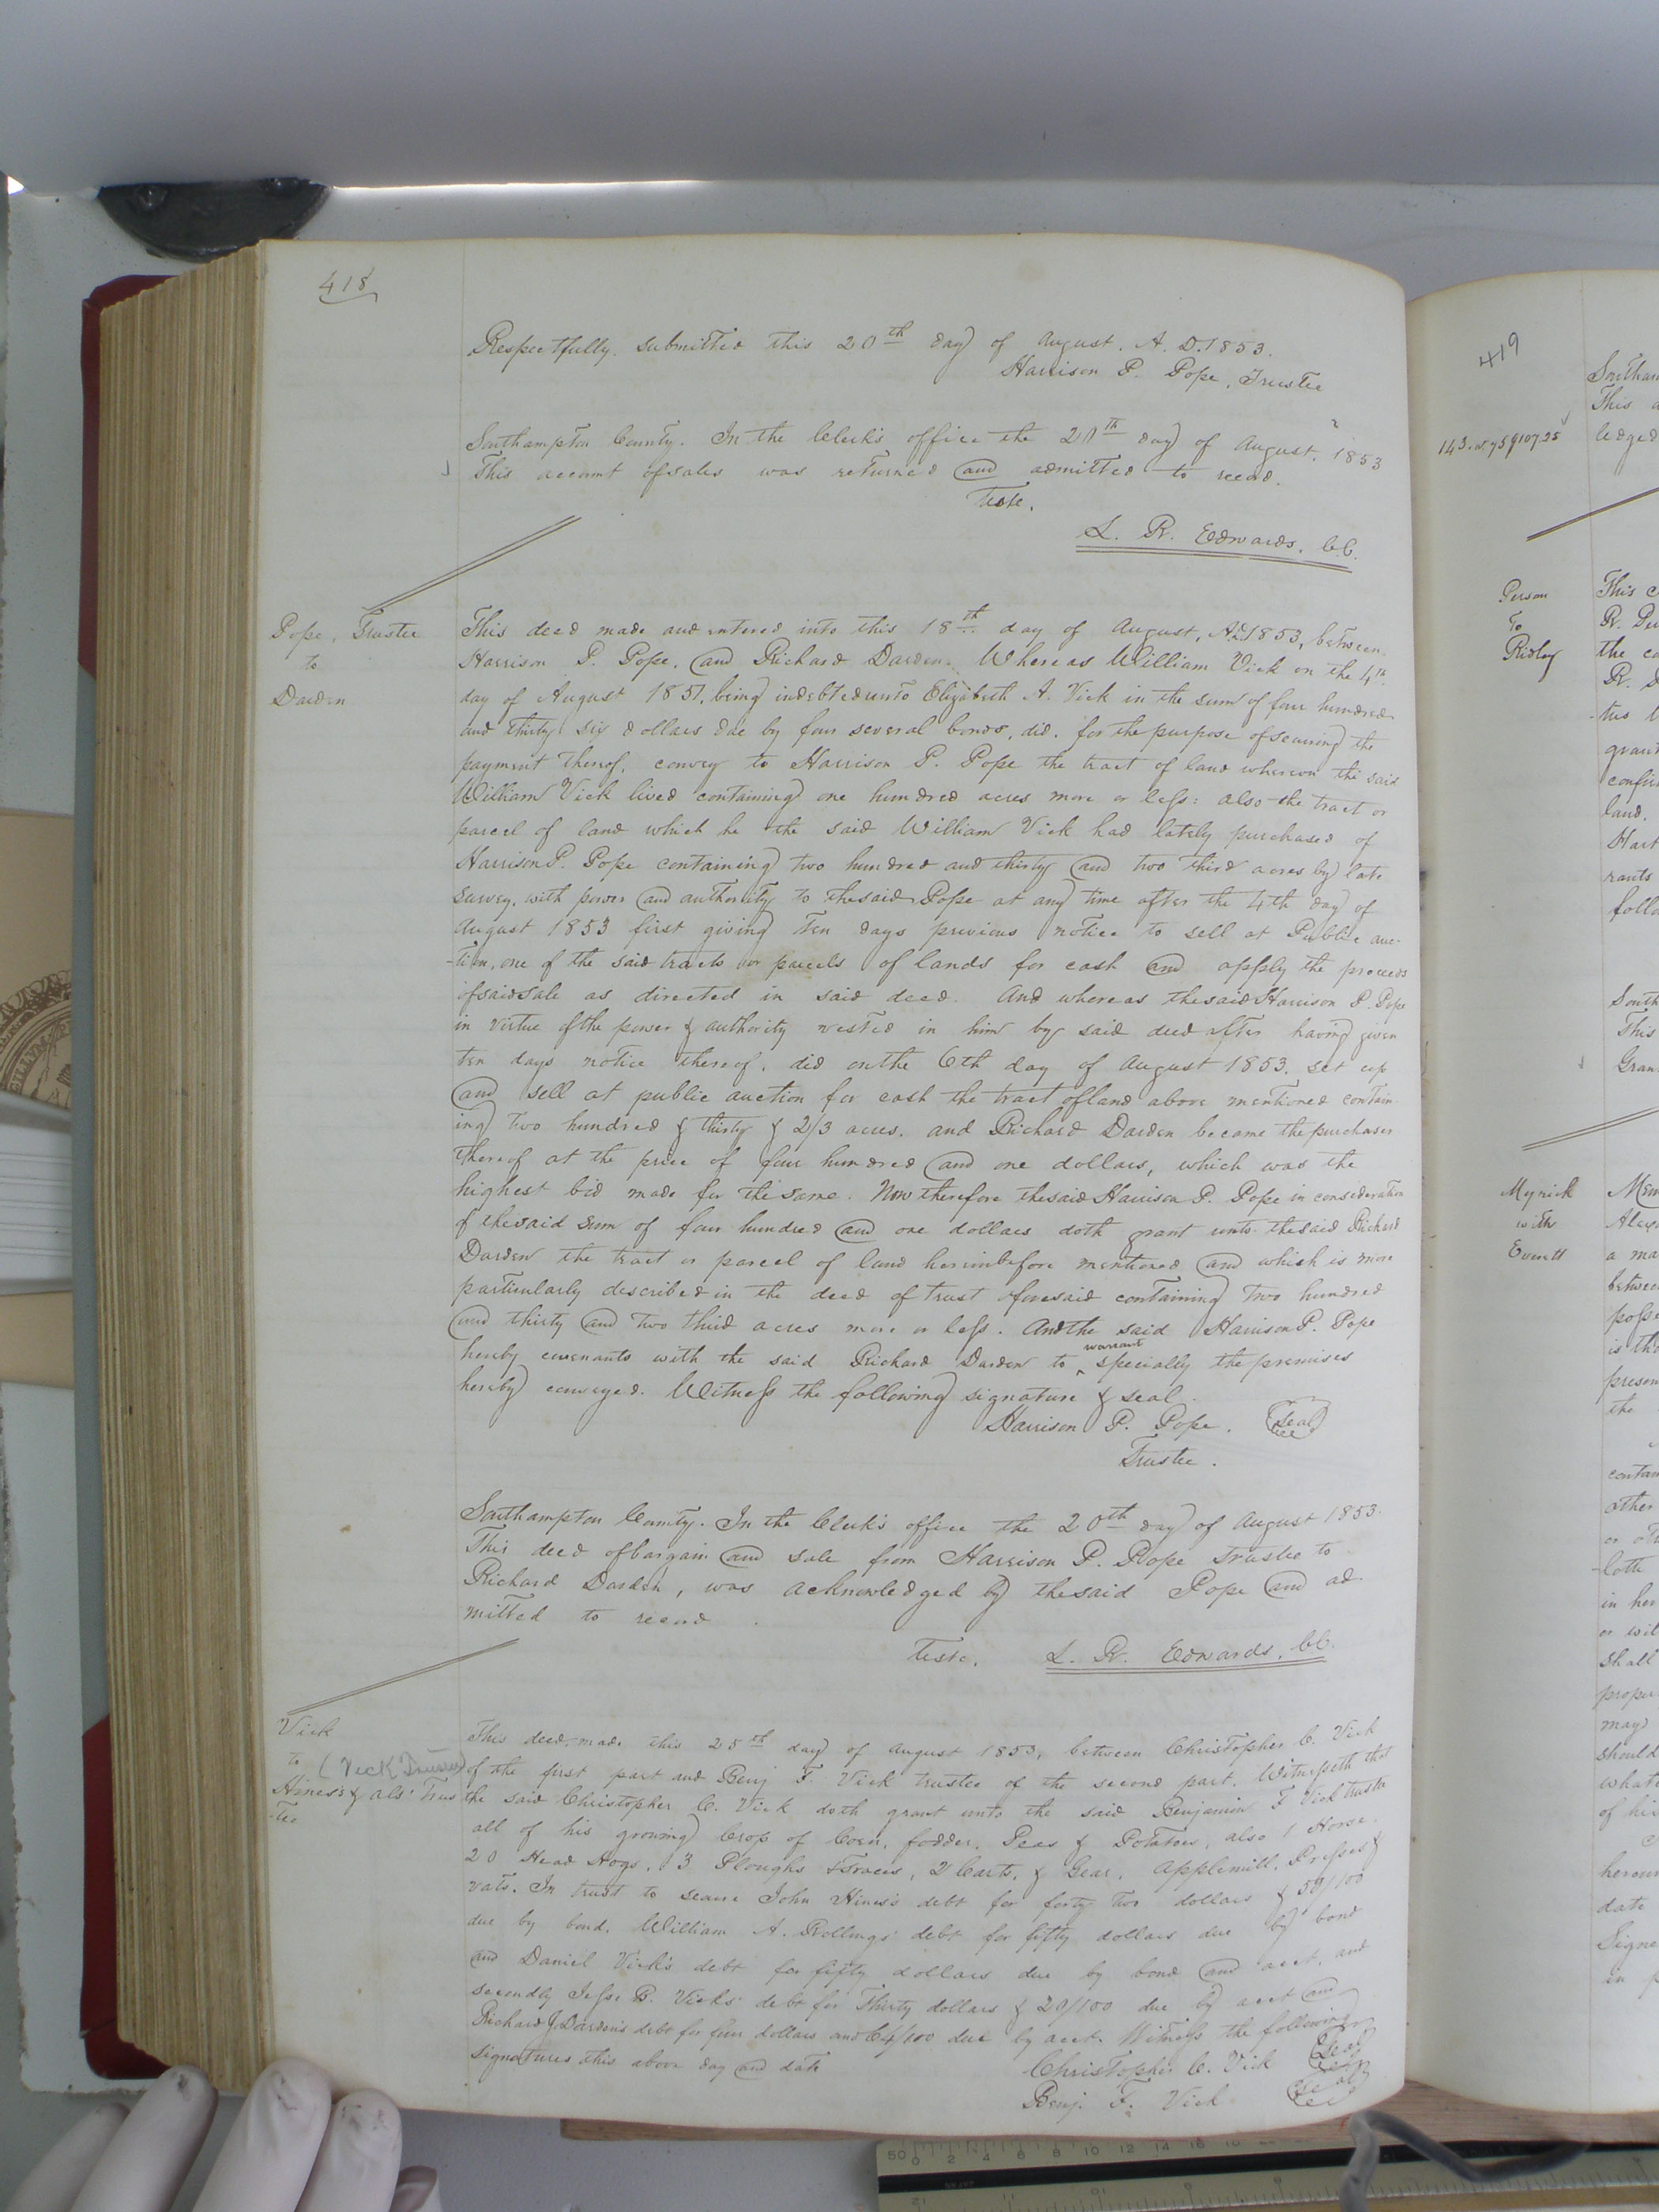 418
Respectfully submitted this 20th day of August. A. D. 1853.
Harrison P. Pope, Trustee
Southampton County. In the Clerk's office the 20th day of August, 1853
This account of sales was returned and admitted to record.
Teste,
L. R. Edwards, C.C.
Pope, Trustee
to
Darden
This deed made and entered into this 18th day of August, A.D. 1853, between
Harrison P. Pope, and Richard Darden. Whereas William Vick on the 4th
day of August 1851, being indebted unto Elizabeth A. Vick in the sum of four hundred
and thirty six dollars due by four several bonds, did, for the purpose of securing the
payment thereof, convey to Harrison P. Pope the tract of land whereon the said
William Vick lived containing one hundred acres more or less: also the tract or
parcel of land which he the said William Vick had lately purchased of
Harrison P. Pope containing two hundred and thirty and two third acres by late
survey, with power and authority to the said Pope at any time after the 4th day of
August 1853 first giving ten days previous notice to sell at Public auc-
-tion, one of the said tracts or parcels of lands for cash and apply the proceeds
of said sale as directed in said deed. And whereas the said Harrison P. Pope
in virtue of the power & authority vested in him by said deed after having given
ten days notice thereof, did on the 6th day of August 1853, set up
and sell at public auction for cash the tract of land above mentioned contain-
ing two hundred & thirty & 2/3 acres. and Richard Darden became the purchaser
thereof at the price of four hundred and one dollars, which was the
highest bid made for the same. Now therefore the said Harrison P. Pope in consideration
of the said sum of four hundred and one dollars doth grant unto the said Richard
Darden the tract or parcel of land hereinbefore mentioned and which is more
particularly described in the deed of trust aforesaid containing two hundred
and thirty and two third acres more or less. And the said Harrison P. Pope
hereby covenants with the said Richard Darden to ^ warrant specially the premises
hereby conveyed. Witness the following signature & seal.
Harrison P. Pope. Seal
Trustee.
Southampton County. In the Clerk's office the 20th day of August 1853.
This deed of bargain and sale from Harrison P. Pope trustee to
Richard Darden, was acknowledged by the said Pope and ad-
mitted to record.
Teste, L. R. Edwards, C.C.
Vick
to (Vick Trustee)
Hines's & als' Trus
-tee
This deed, made this 25th day of August 1853, between Christopher C. Vick
of the first part and Benj F. Vick trustee of the second part. Witnesseth that
the said Christopher C. Vick doth grant unto the said Benjamin F Vick trustee
all of his growing Crop of Corn, fodder, Peas & Potatoes, also 1 Horse,
20 Head Hogs, 3 Ploughs & Traces, 2 Carts, & Gear, Applemill, Presses &
vats. In trust to secure John Hines's debt for forty two dollars & 50/100
due by bond, William A. Rollings' debt for fifty dollars due by bond
and Daniel Vick's debt for fifty dollars due by bond and acct. and
secondly Jesse B. Vicks' debt for Thirty dollars & 20/100 due by acct and
Richard J Darden's debt for four dollars and 64/100 due by acct. Witness the following
signatures this above day and date
Christopher C. Vick Seal
Benj. F. Vick Seal
419
Southam
This
ledged
Person
To
Ridley
This
the
land.
rants
South
This
Gran
Myrick
with
Everett
a ma
between
is
presen
the
contain
other
in her
or wil
shall
proper
may
should
what
of his
date
Signe
in
50 0 2 4 6 8 10 12 14 16 18